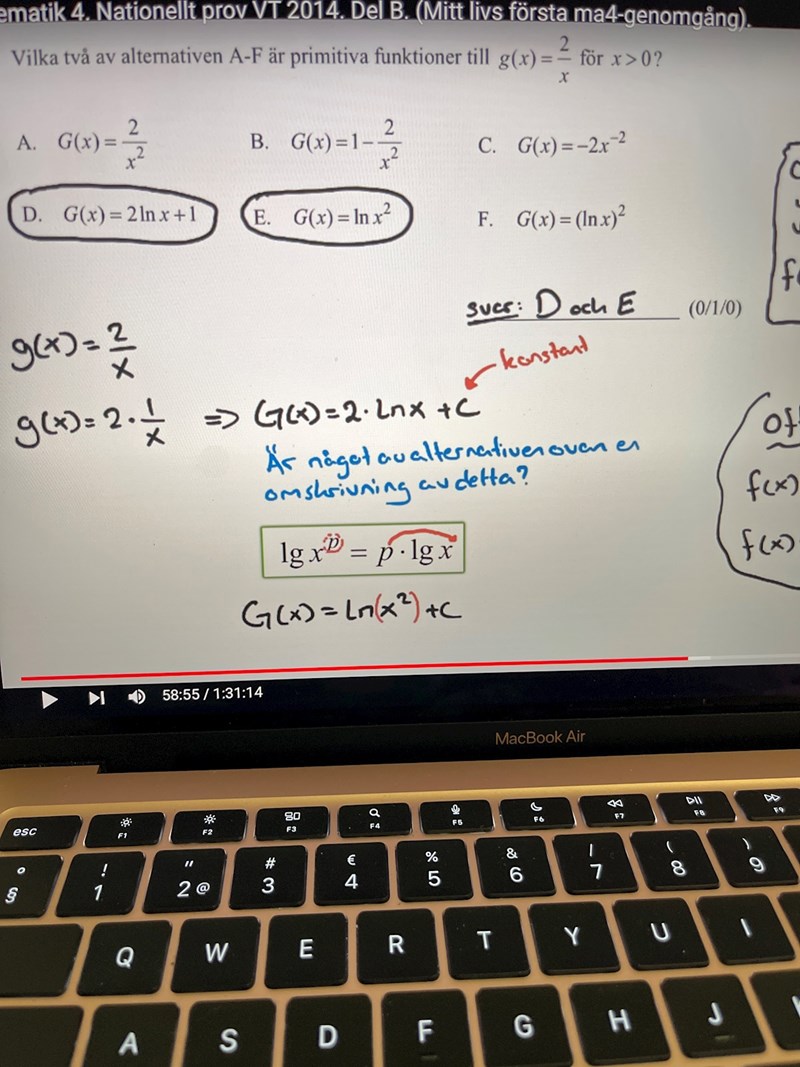 ematik 4. Nationellt prov VT 2014. Del B. (Mitt livs första ma4-genomgång).
Vilka två av alternativen A-F är primitiva funktioner till g(x) = 2/x för x > 0?
A. G(x) = 2/x² B. G(x) = 1 − 2/x² C. G(x) = −2x⁻²
D. G(x) = 2 ln x + 1 E. G(x) = ln x² F. G(x) = (ln x)²
svar: D och E (0/1/0)
g(x) = 2/x
konstant
g(x) = 2 · 1/x ⇒ G(x) = 2 · Ln x + C
Är något av alternativen ovan en
omskrivning av detta?
lg x^p = p · lg x
G(x) = Ln(x²) + C
Off
f(x)
f(x)
58:55 / 1:31:14
MacBook Air
esc F1 F2 F3 F4 F5 F6 F7 F8 F9
° § ! 1 " 2 @ # 3 € 4 % 5 & 6 / 7 ( 8 ) 9
Q W E R T Y U I
A S D F G H J